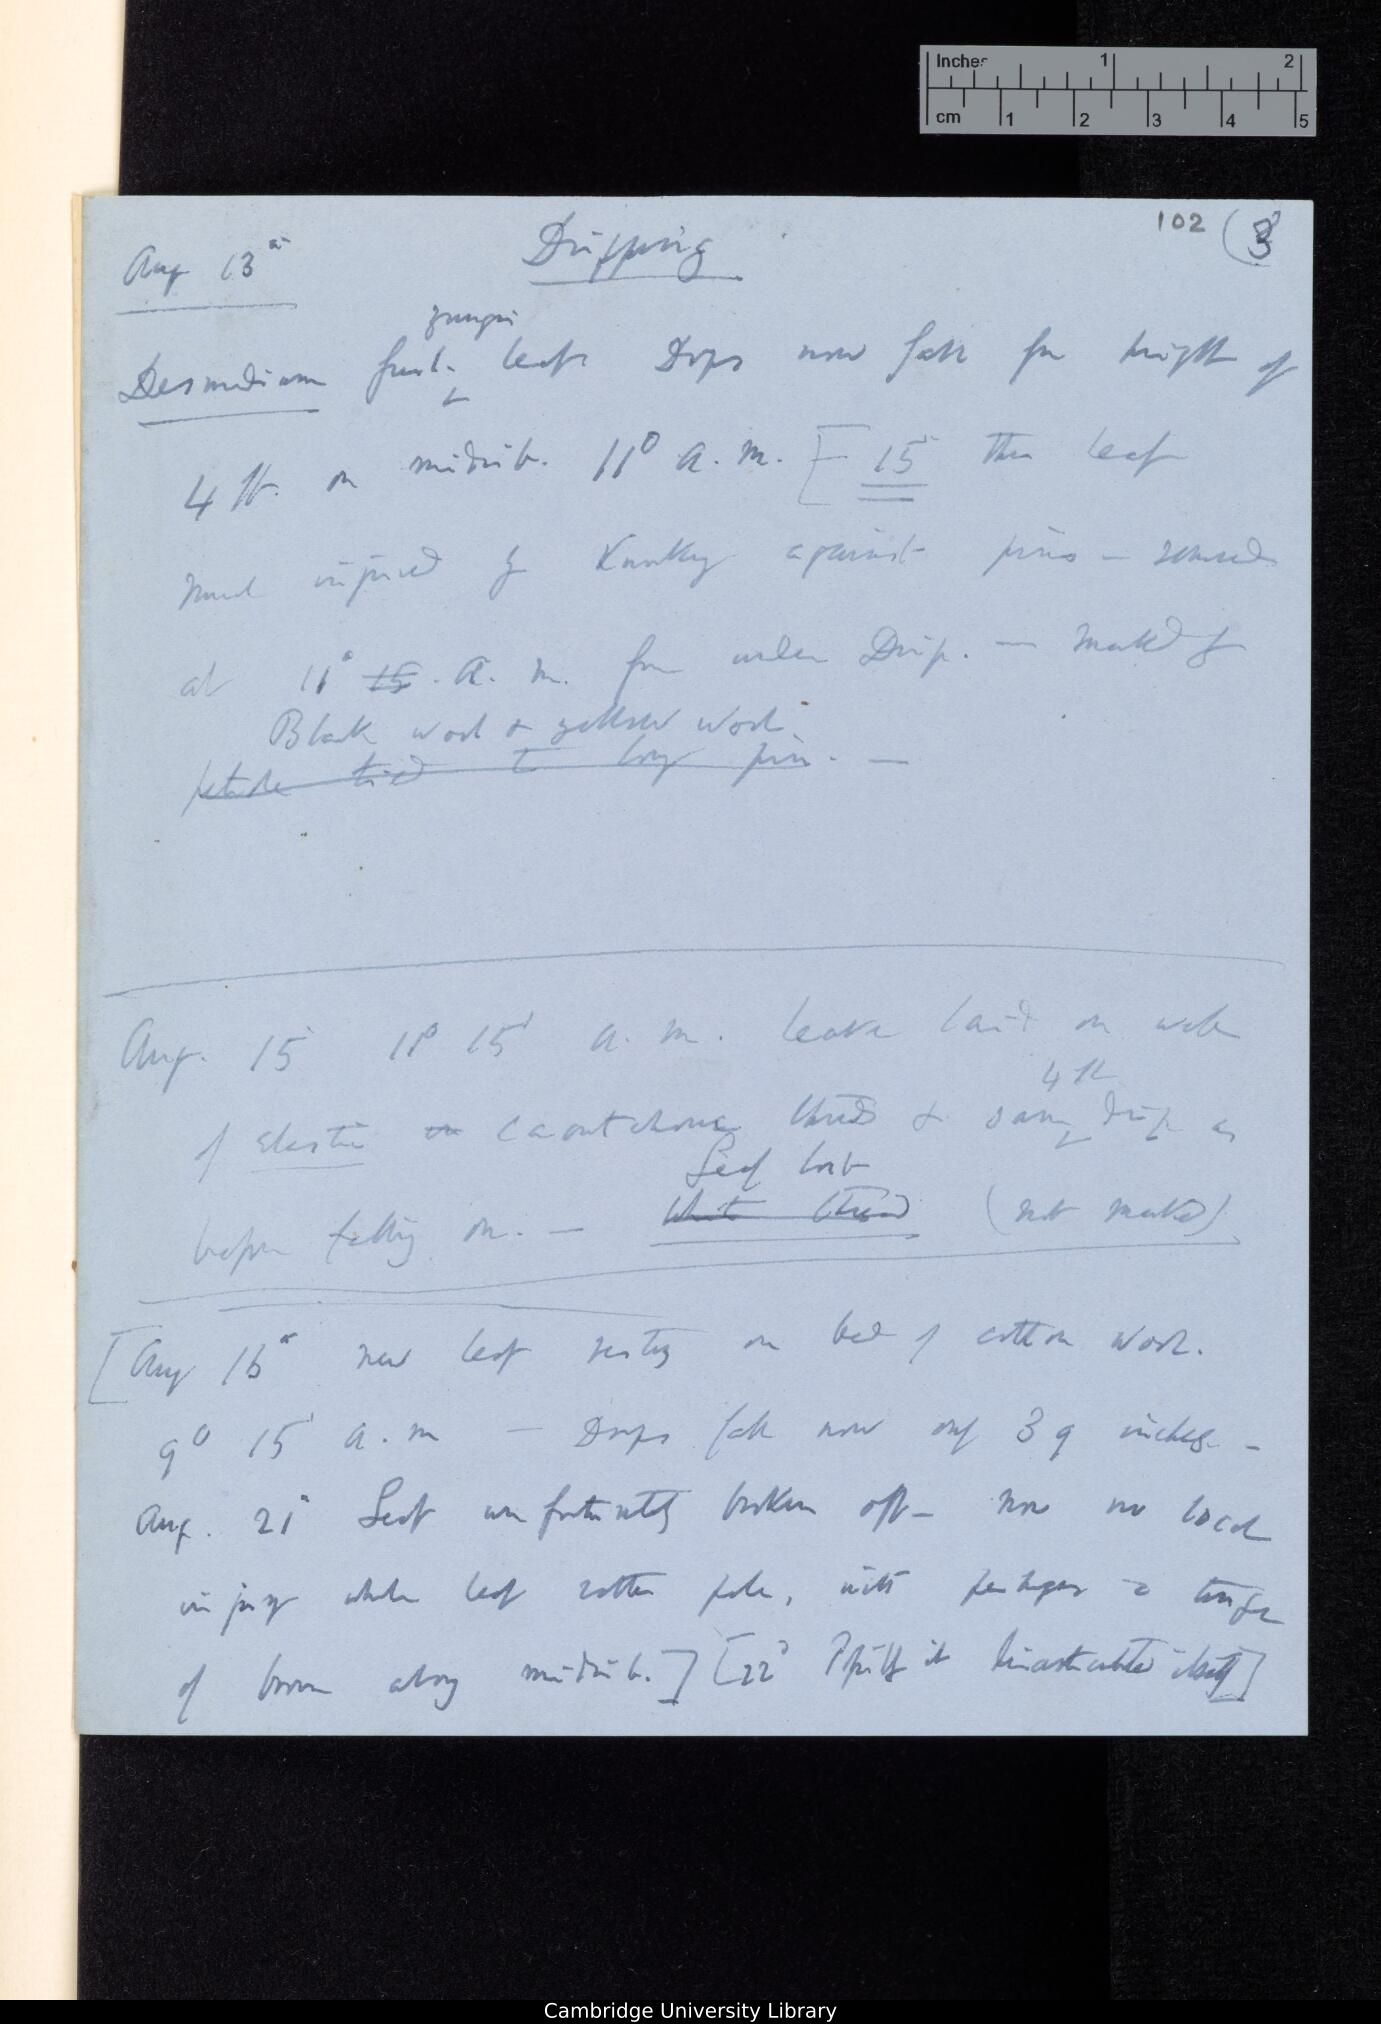 Inches 1 2
cm 1 2 3 4 5
102 (3
Aug 13th Dripping
younger
Desmodium fresh leaf Drops now fall from height of
4 ft. on midrib. 11° a.m. [15 this leaf
much injured by knocking against pins — removed
at 11° 15. a. m. from under Drip. — marked by
Black wool & yellow wool.
petiole tied to long pin. —
Aug. 15 11° 15' a. m. leaves laid on
4 ft
of elastic caoutchouc thread & same drip as
Leaf lost
before falling on. — white thread (not marked)
[Aug 16th new leaf resting on bed of cotton wool.
9° 15' a.m — Drops fall now only 39 inches. —
Aug. 21 Leaf unfortunately broken off — now no local
injury whole leaf rather pale, with perhaps a tinge
of brown along midrib.] [22 it itself]
Cambridge University Library